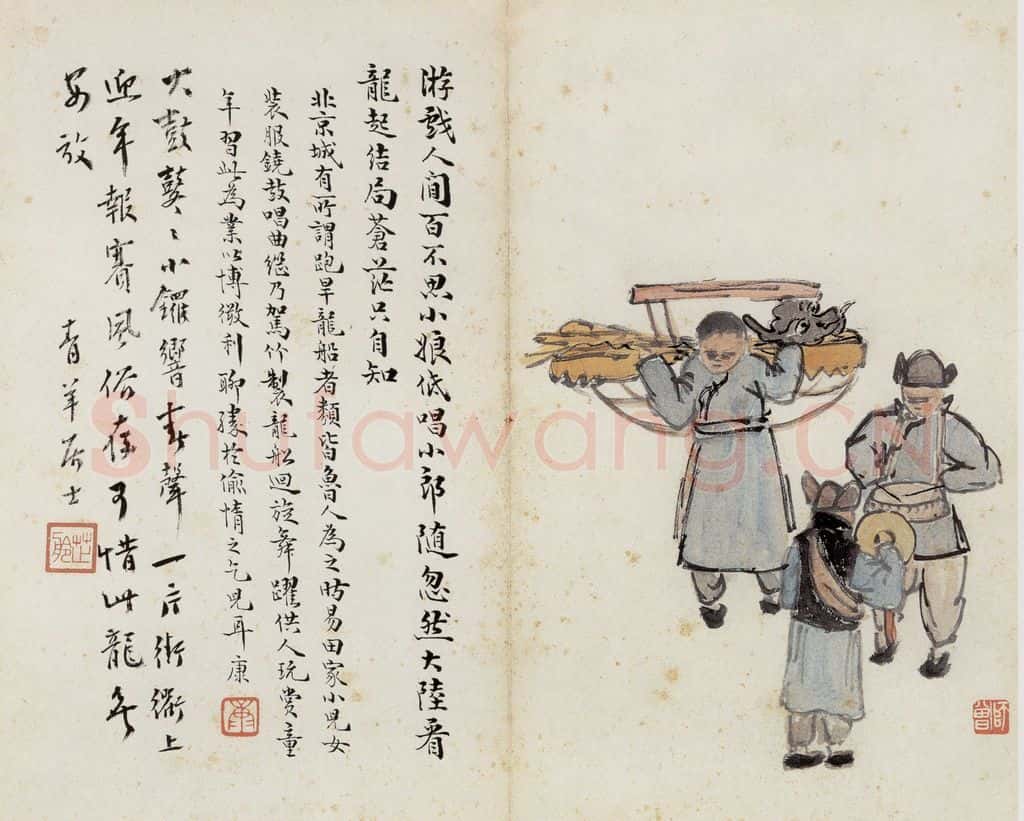 游戲人間百不思小娘低唱小郎隨忽然大陸看
龍起結局蒼茫只自知
北京城有所謂跑旱龍船者類皆魯人為之時易田家小兒女
裝服鐃鼓唱曲繼乃駕竹製龍船迴旋舞躍供人玩賞童
年習此為業以博微利聊於偷惰之乞兒耳康
大鼓鼕〻小鑼響春聲一片街衢上
迎年報賽風俗存可惜此龍無
安放
青羊居士
芷舲
師曾
Shufawang.CN